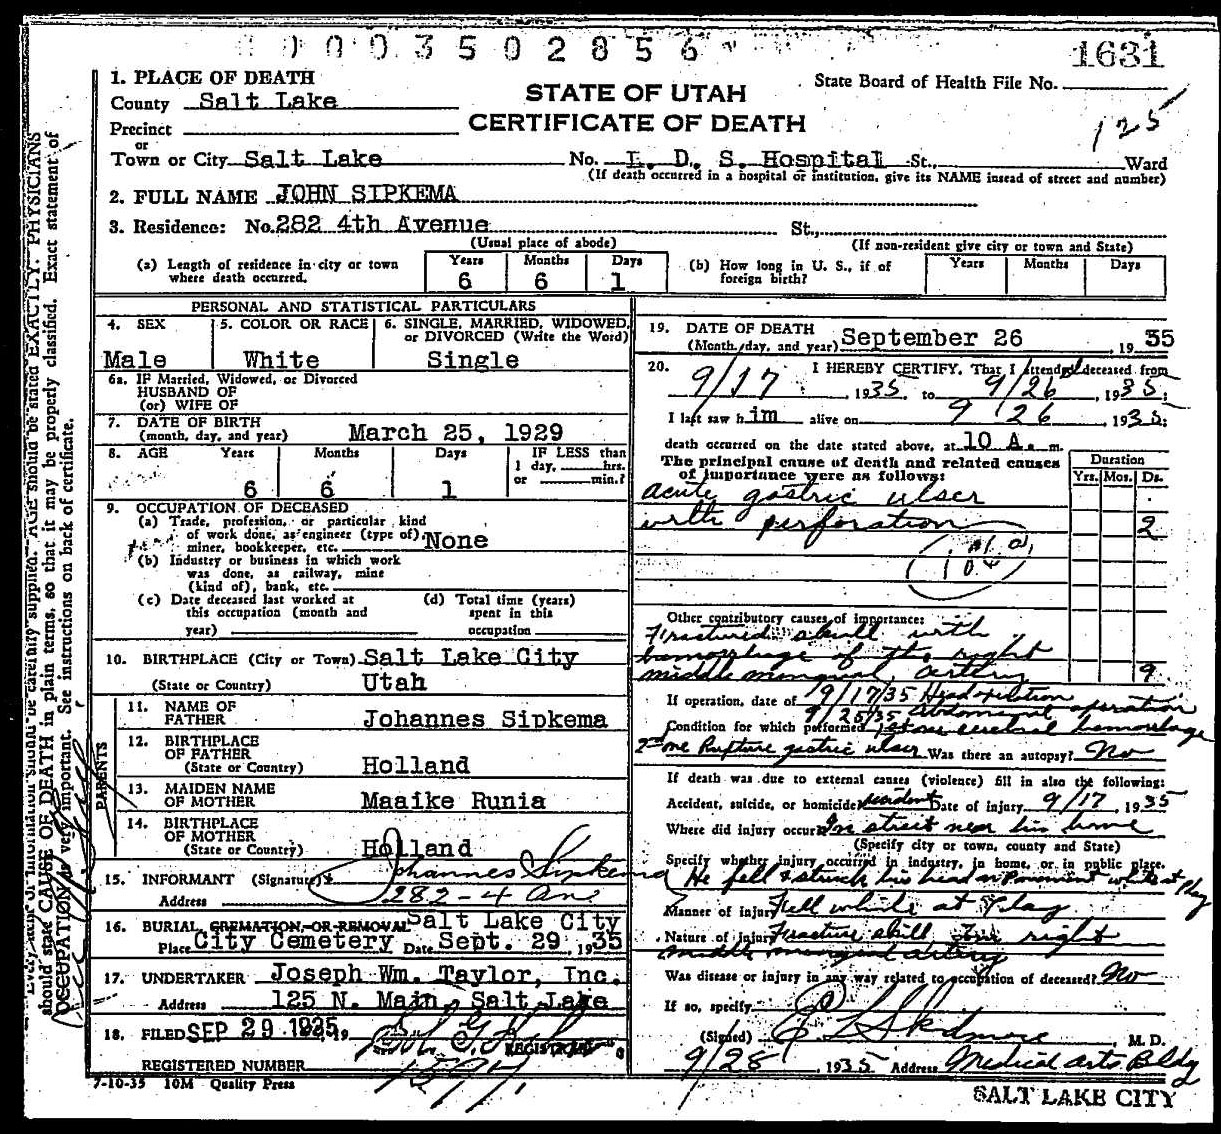 0003502856
1631
1. PLACE OF DEATH
County Salt Lake
STATE OF UTAH
State Board of Health File No.
Precinct
CERTIFICATE OF DEATH
125
or
Town or City Salt Lake No. L. D. S. Hospital St., Ward
(If death occurred in a hospital or institution, give its NAME insead of street and number)
2. FULL NAME JOHN SIPKEMA
3. Residence: No. 282 4th Avenue St.,
(Usual place of abode) (If non-resident give city or town and State)
(a) Length of residence in city or town where death occurred. Years 6 Months 6 Days 1
(b) How long in U. S., if of foreign birth? Years Months Days
PERSONAL AND STATISTICAL PARTICULARS
4. SEX 5. COLOR OR RACE 6. SINGLE, MARRIED, WIDOWED, or DIVORCED (Write the Word)
Male White Single
6a. IF Married, Widowed, or Divorced
HUSBAND OF
(or) WIFE OF
7. DATE OF BIRTH
(month, day, and year) March 25, 1929
8. AGE Years Months Days IF LESS than
1 day, hrs.
or min.?
6 6 1
9. OCCUPATION OF DECEASED
(a) Trade, profession, or particular kind
of work done, as engineer (type of), None
miner, bookkeeper, etc.
(b) Industry or business in which work
was done, as railway, mine
(kind of), bank, etc.
(c) Date deceased last worked at
this occupation (month and
year)
(d) Total time (years)
spent in this
occupation
10. BIRTHPLACE (City or Town) Salt Lake City
(State or Country) Utah
PARENTS
11. NAME OF
FATHER Johannes Sipkema
12. BIRTHPLACE
OF FATHER
(State or Country) Holland
13. MAIDEN NAME
OF MOTHER Maaike Runia
14. BIRTHPLACE
OF MOTHER
(State or Country) Holland
15. INFORMANT (Signature) Johannes Sipkema
Address 282 - 4 Av.
16. BURIAL, CREMATION, OR REMOVAL Salt Lake City
Place City Cemetery Date Sept. 29, 1935
17. UNDERTAKER Joseph Wm. Taylor, Inc.
Address 125 N. Main, Salt Lake
18. FILED SEP 29 1935, 19
REGISTRAR
REGISTERED NUMBER
7-10-35 10M Quality Press
19. DATE OF DEATH
(Month, day, and year) September 26, 1935
20. I HEREBY CERTIFY, That I attended deceased from
9/17, 1935, to 9/26, 1935;
I last saw him alive on 9 26, 1935;
death occurred on the date stated above, at 10 A. m.
The principal cause of death and related causes
of importance were as follows:
Duration
Yrs. Mos. Ds.
acute gastric ulser
with perforation 2
Other contributory causes of importance:
Fractured skull with
hemorrhage of the right
middle mengual artery 9
If operation, date of 9/17/35 Head opelation
9/25/35 Abdominal operation
Condition for which performed 1st one cerebral hemorhage
2nd one Rupture gastric ulser Was there an autopsy? No
If death was due to external causes (violence) fill in also the following:
Accident, suicide, or homicide? accident Date of injury 9/17, 1935
Where did injury occur? In street near his home
(Specify city or town, county and State)
Specify whether injury occurred in industry, in home, or in public place.
He fell & struck his head on Pavement while at play
Manner of injury Fell while at Play
Nature of injury Fracture skull Tore right
middle mengual artery
Was disease or injury in any way related to occupation of deceased? No
If so, specify
(Signed) E L Skidmore, M. D.
9/28, 1935 Address Medical Arts Bldg
SALT LAKE CITY
should be carefully supplied. AGE should be stated EXACTLY. PHYSICIANS
should state CAUSE OF DEATH in plain terms, so that it may be properly classified. Exact statement of
OCCUPATION is very important. See instructions on back of certificate.